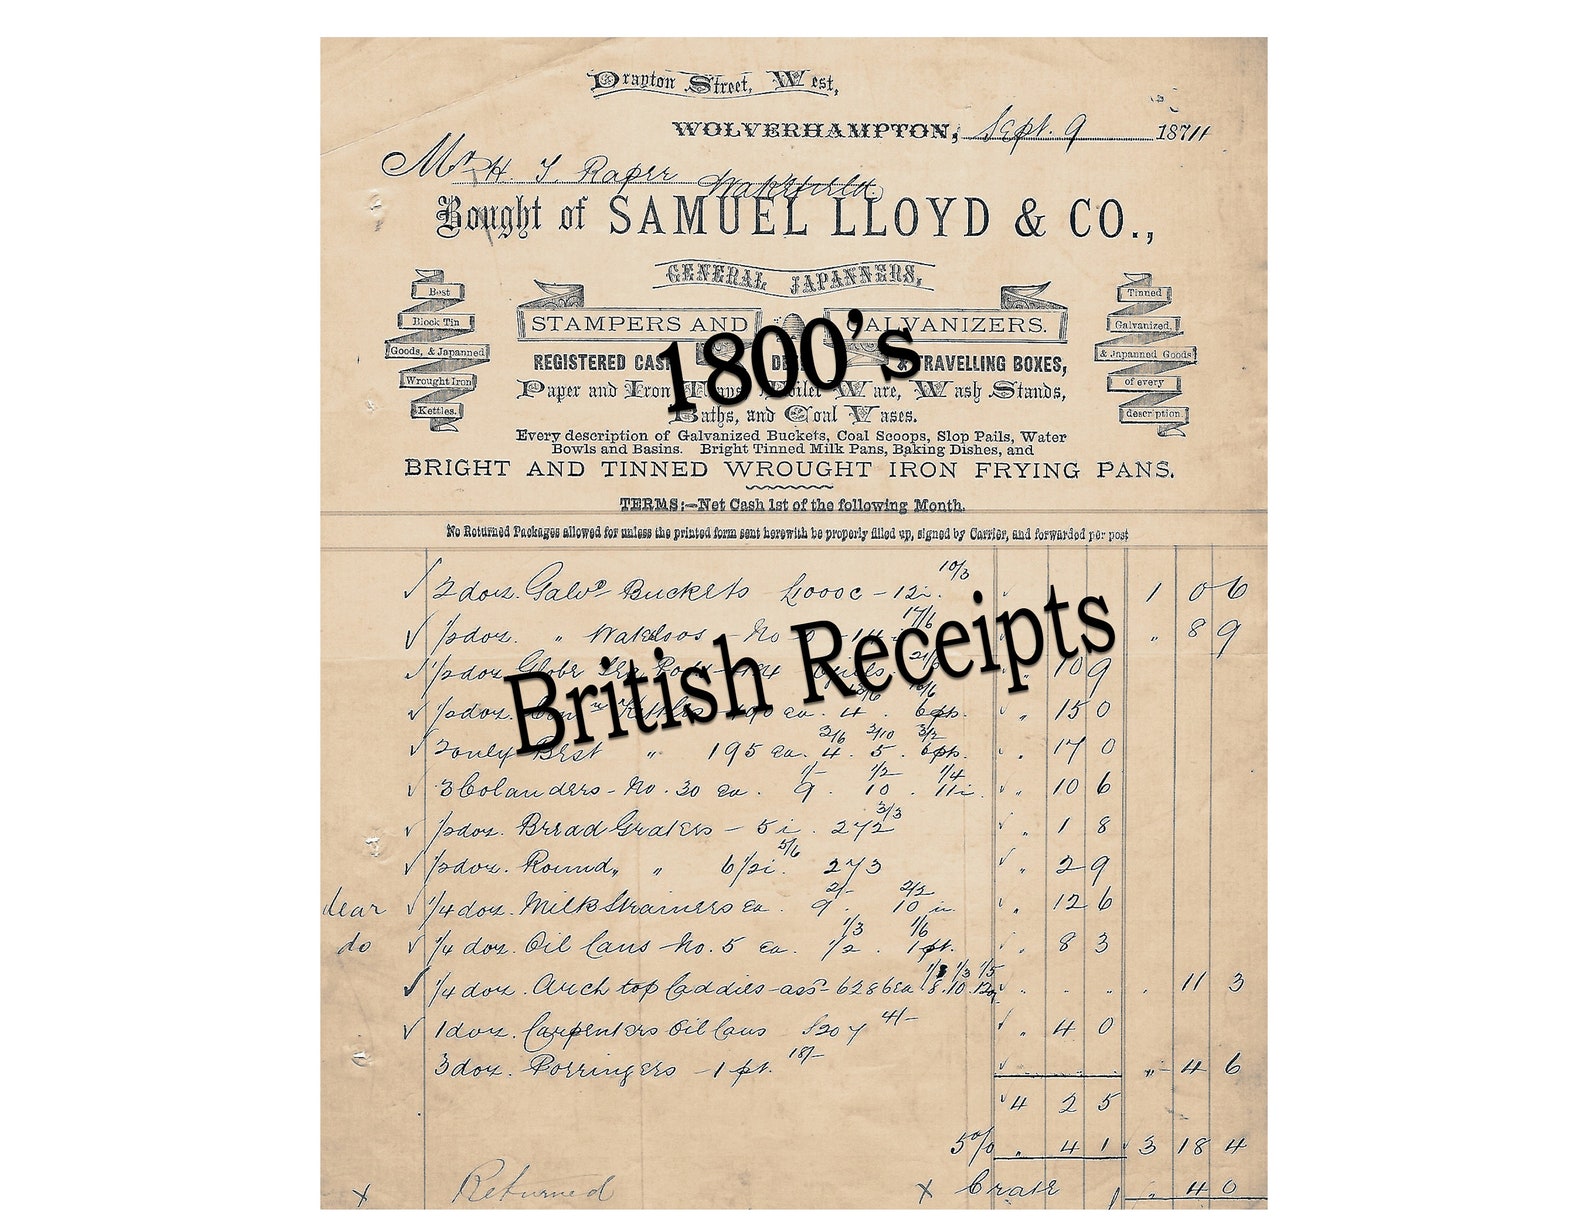 Drayton Street, West,
WOLVERHAMPTON, Sept. 9 1874
Mr H. T. Raper Wakefield.
Bought of SAMUEL LLOYD & CO.,
GENERAL JAPANNERS,
STAMPERS AND GALVANIZERS.
Best
Block Tin
Goods, & Japanned
Wrought Iron
Kettles.
Tinned
Galvanized,
& Japanned Goods
of every
description.
1800's
REGISTERED CASH & TRAVELLING BOXES,
Paper and Iron Toilet Ware, Wash Stands,
Baths, and Coal Vases.
Every description of Galvanized Buckets, Coal Scoops, Slop Pails, Water
Bowls and Basins. Bright Tinned Milk Pans, Baking Dishes, and
BRIGHT AND TINNED WROUGHT IRON FRYING PANS.
TERMS:—Net Cash 1st of the following Month.
No Returned Packages allowed for unless the printed form sent herewith be properly filled up, signed by Carrier, and forwarded per post
2 doz. Galvd Buckets - 12i. 10/3 1 0 6
1/2 doz. " No 17/6 " 8 9
1/2 doz. Globe Tea 10 9
British Receipts
1/2 doz. Kettles 190 ea. 4 . 6 pts. 15 0
2 only Best " 195 ea. 4 . 5 . 6 pts. 2/6 3/10 3/2 17 0
3 Colanders - No. 30 ea. 9 . 10 . 11i. 1/- 1/2 1/4 10 6
1/2 doz. Bread Graters - 5i. 272 3/3 1 8
1/2 doz. Round " " 6 1/2i. 273 5/6 2 9
dear 1/4 doz. Milk Strainers ea. 9 . 10 in 2/- 2/2 12 6
do 1/4 doz. Oil Cans No. 5 ea. 1/2 . 1 pt. 1/3 1/6 8 3
1/4 doz. Arch top Caddies - asst 6286 ea 8.10.12 1/3 1/5 11 3
1 doz. Carpenters Oil Cans 207 4/- 4 0
3 doz. Porringers - 1 pt. 18/- 4 6
4 2 5
5% 4 1 3 18 4
x Returned x Crate 4 0